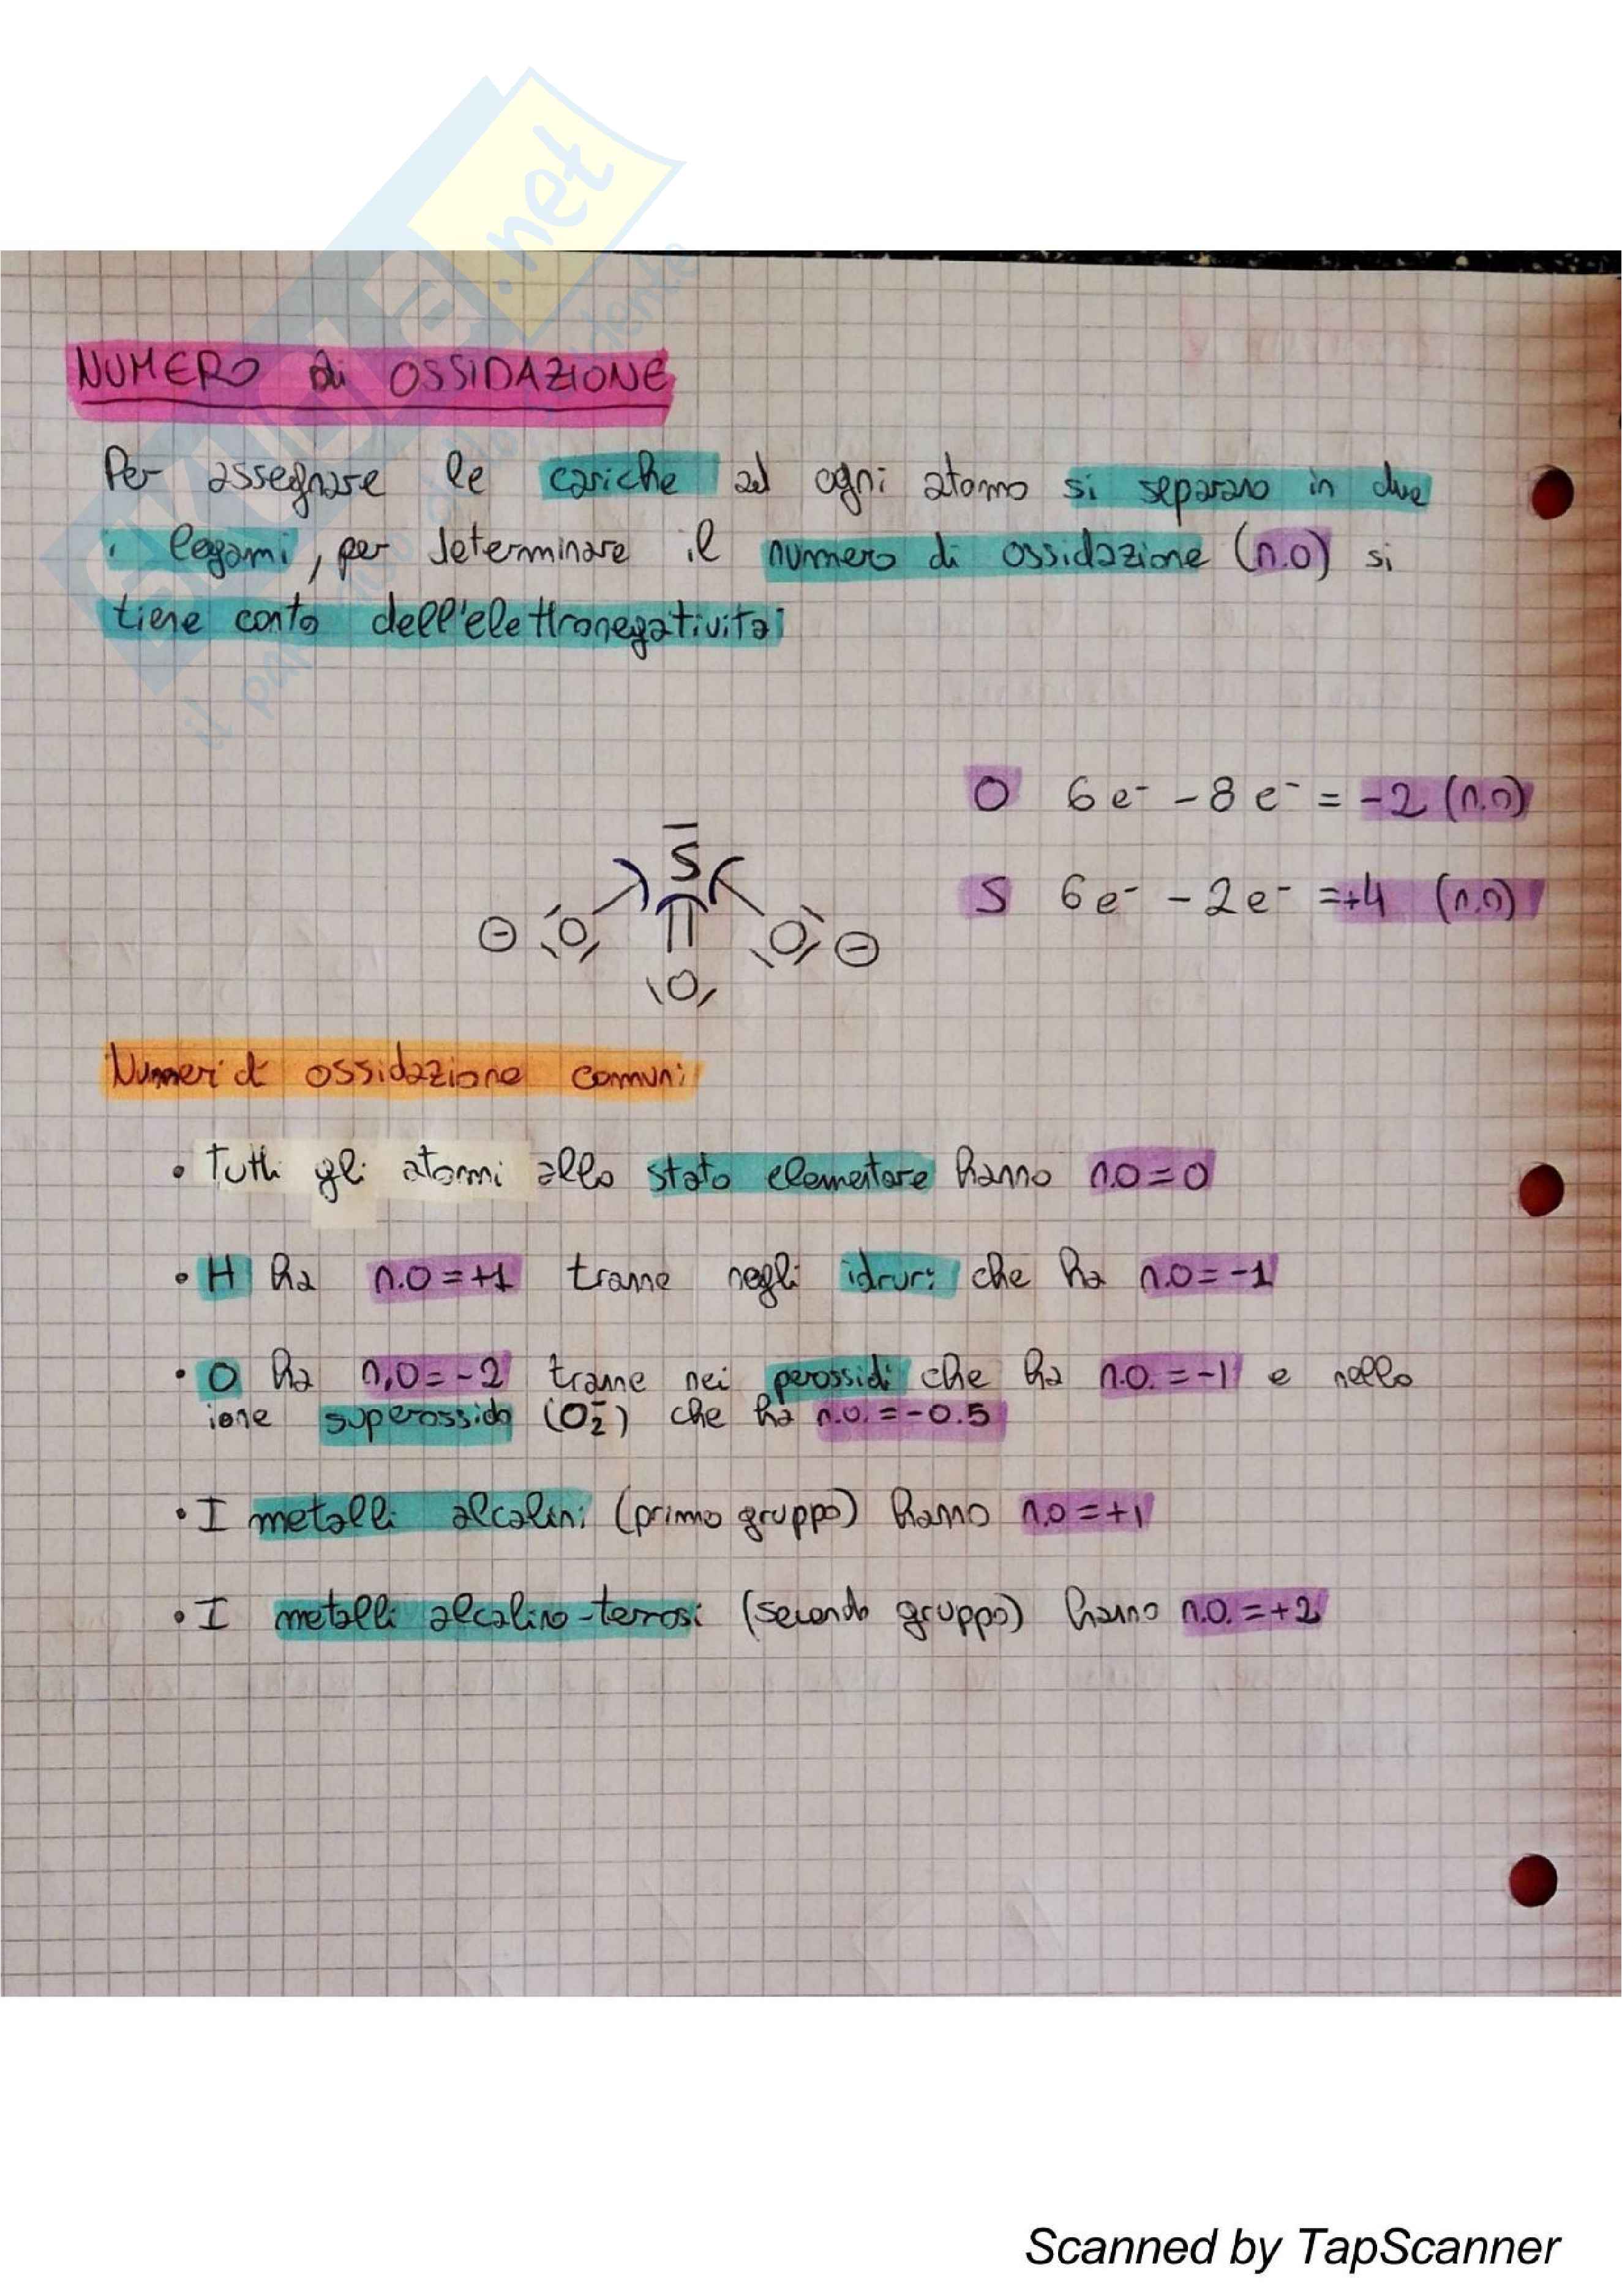 SKUOLA.net
il paradiso dello studente
NUMERO di OSSIDAZIONE
Per assegnare le cariche ad ogni atomo si separano in due
i legami, per determinare il numero di ossidazione (n.o) si
tiene conto dell'elettronegatività
O 6e⁻ - 8e⁻ = -2 (n.o)
S
S 6e⁻ - 2e⁻ = +4 (n.o)
⊖ O O ⊖
O
Numeri di ossidazione comuni
• Tutti gli atomi allo stato elementare hanno n.o=0
• H ha n.o=+1 tranne negli idruri che ha n.o=-1
• O ha n.o=-2 tranne nei perossidi che ha n.o.=-1 e nello
ione superossido (O₂⁻) che ha n.o.=-0.5
• I metalli alcalini (primo gruppo) hanno n.o=+1
• I metalli alcalino-terrosi (secondo gruppo) hanno n.o.=+2
Scanned by TapScanner